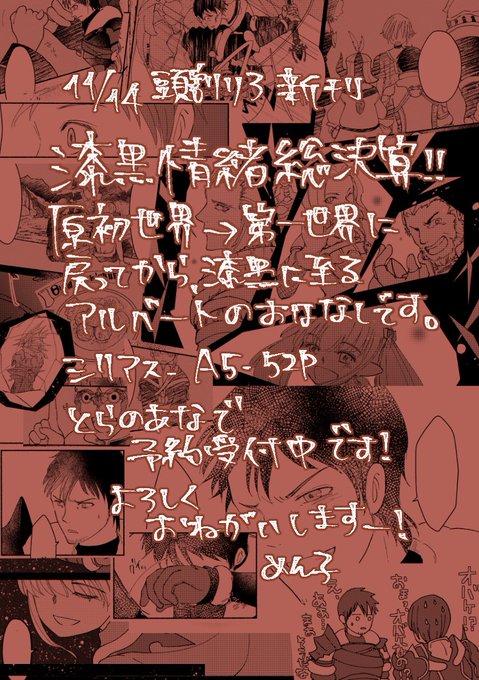 11/14 頭割り3 新刊
漆黒情緒総決算!!
原初世界→第一世界に
戻ってから、漆黒に至る
アルバートのおはなしです。
シリアス- A5- 52P
とらのあなで
予約受付中です!
よろしく
おねがいしますー!
めん子
オバケ!?